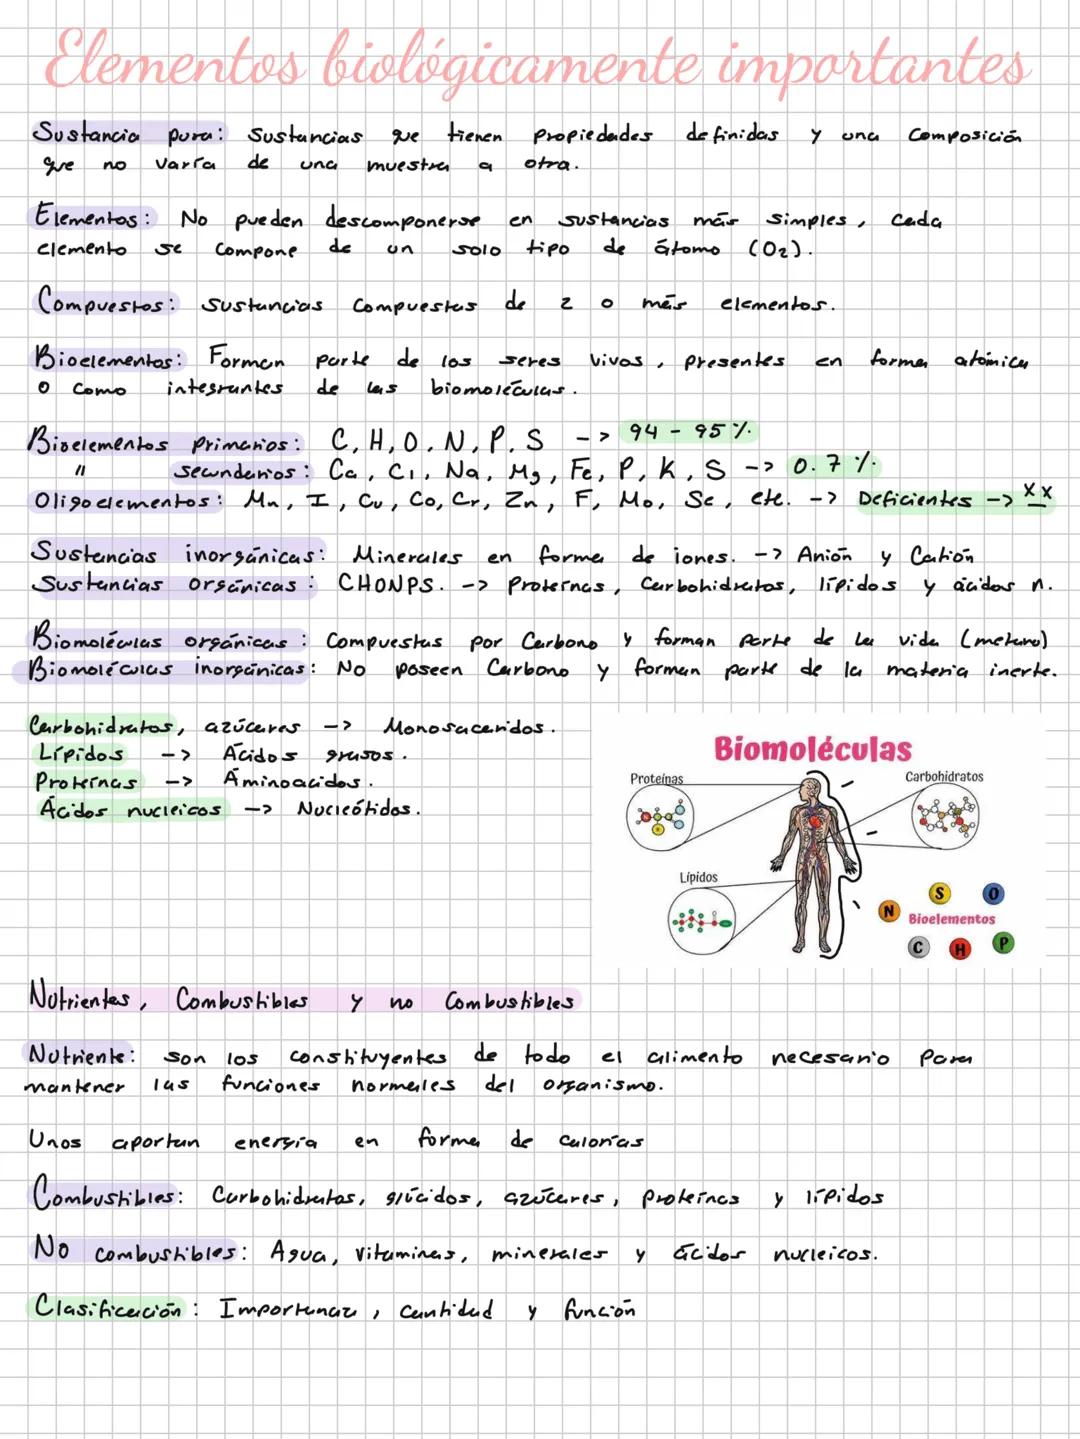 Elementos biológicamente importantes
Sustancia pura: Sustancias que tienen propiedades definidas y una composición
que no varía de una muestra a otra.
Elementos: No pueden descomponerse en sustancias más simples, cada
elemento se compone de un solo tipo de átomo (O₂).
Compuestos: Sustancias compuestas de 2 o más elementos.
Bioelementos: Forman parte de los seres vivos, presentes en forma atómica
o como integrantes de las biomoléculas.
Bioelementos primarios: C, H, O, N, P, S -> 94 - 95 %.
" secundarios: Ca, Cl, Na, Mg, Fe, P, K, S -> 0.7 %.
Oligoelementos: Mn, I, Cu, Co, Cr, Zn, F, Mo, Se, etc. -> Deficientes -> XX
Sustancias inorgánicas: Minerales en forma de iones. -> Anión y Catión
Sustancias orgánicas: CHONPS. -> Proteínas, Carbohidratos, lípidos y ácidos n.
Biomoléculas orgánicas: Compuestas por Carbono y forman parte de la vida (metano)
Biomoléculas inorgánicas: No poseen Carbono y forman parte de la materia inerte.
Carbohidratos, azúcares -> Monosacaridos.
Lípidos -> Ácidos grasos.
Proteínas -> Aminoacidos.
Ácidos nucleicos -> Nucleótidos.
Biomoléculas
Proteínas
Carbohidratos
Lípidos
N S O
Bioelementos
C H P
Nutrientes, Combustibles y no Combustibles
Nutriente: son los constituyentes de todo el alimento necesario para
mantener las funciones normales del organismo.
Unos aportan energía en forma de calorías
Combustibles: Carbohidratos, glúcidos, azúcares, proteínas y lípidos
No combustibles: Agua, vitaminas, minerales y ácidos nucleicos.
Clasificación: Importancia, cantidad y función